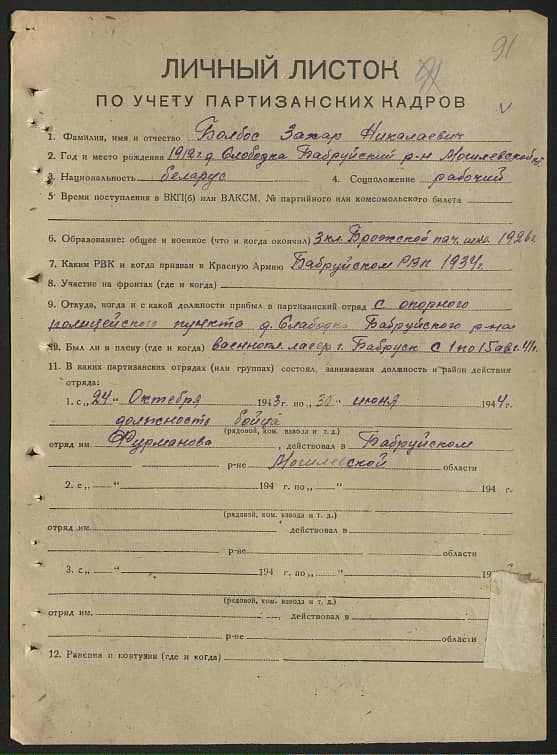 91
ЛИЧНЫЙ ЛИСТОК
ПО УЧЕТУ ПАРТИЗАНСКИХ КАДРОВ
1. Фамилия, имя и отчество Болбос Захар Николаевич
2. Год и место рождения 1912 г. д. Слободка Бабруйский р-н Могилевской
3. Национальность беларус 4. Соцположение рабочий
5. Время поступления в ВКП(б) или ВЛКСМ, № партийного или комсомольского билета
6. Образование: общее и военное (что и когда окончил) 3 кл. Брожской нач. шк. 1926 г.
7. Каким РВК и когда призван в Красную Армию Бабруйском РВК 1934 г.
8. Участие на фронтах (где и когда)
9. Откуда, когда и с какой должности прибыл в партизанский отряд с опорного
полицейского пункта д. Слабодка Бабруйского р-на
10. Был ли в плену (где и когда) военнопл. лагер г. Бабруск с 1 по 15 авг. 41 г.
11. В каких партизанских отрядах (или группах) состоял, занимаемая должность и район действия
отряда:
1. с „24“ Октября 1943 г. по „30“ июня 1944 г.
должность бойца
(рядовой, ком. взвода и т. д.)
отряд им. Фурманова, действовал в Бабруйском
р-не Могилевской области
2. с „ “ 194 г. по „ “ 194 г.
(рядовой, ком. взвода и т. д.)
отряд им. действовал в
р-не области
3. с „ “ 194 г. по „ “
(рядовой, ком. взвода и т. д.)
отряд им. , действовал в
р-не области
12. Ранения и контузии (где и когда)